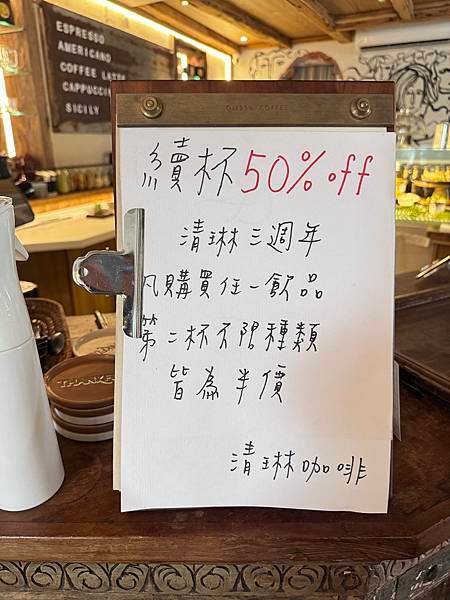 ESPRESSO
AMERICANO
COFFEE LATTE
CAPPUCCINO
SICILY
續杯50% off
清琳三週年
凡購買任一飲品
第二杯不限種類
皆為半價
清琳咖啡